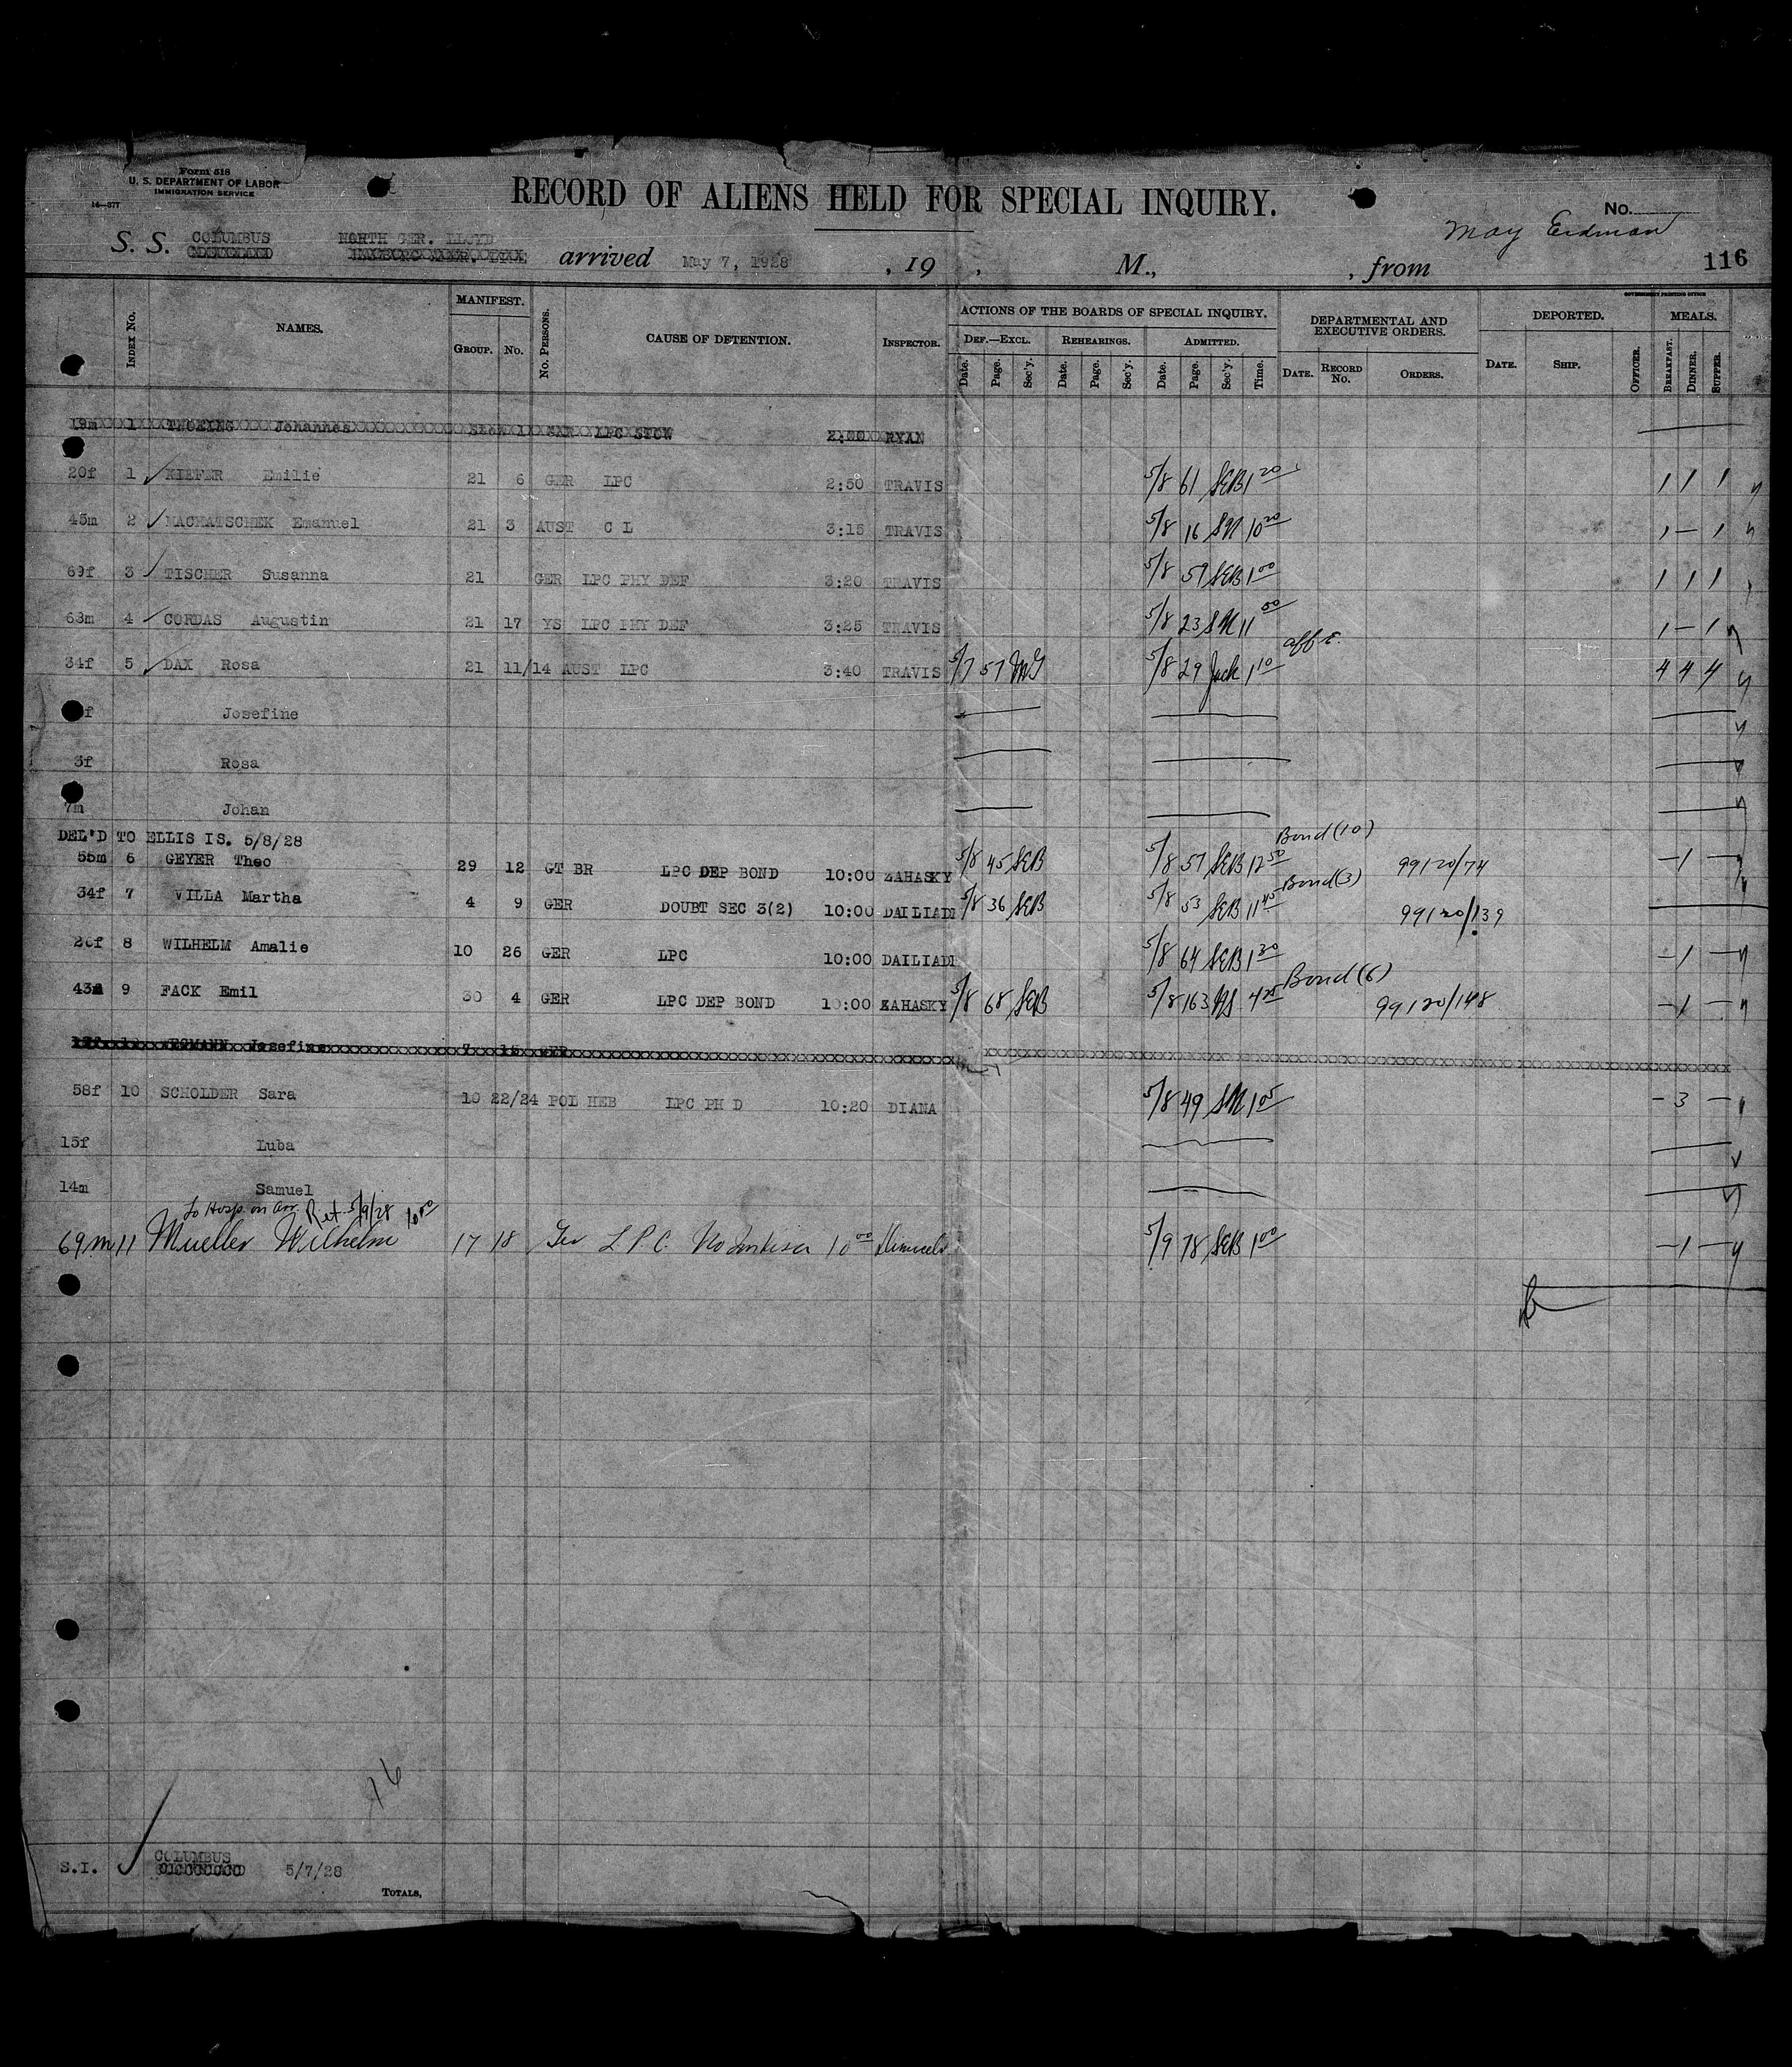 Form 518
U. S. DEPARTMENT OF LABOR
IMMIGRATION SERVICE
RECORD OF ALIENS HELD FOR SPECIAL INQUIRY.
No.
May Erdman
116
S. S. COLUMBUS NORTH GER. LLOYD arrived May 7, 1928 , 19 , M., , from
GOVERNMENT PRINTING OFFICE
INDEX No. NAMES. MANIFEST. GROUP. No. No. PERSONS. CAUSE OF DETENTION. INSPECTOR. ACTIONS OF THE BOARDS OF SPECIAL INQUIRY. DEPARTMENTAL AND EXECUTIVE ORDERS. DEPORTED. MEALS.
DEF.—EXCL. REHEARINGS. ADMITTED.
Date. Page. Sec'y. Date. Page. Sec'y. Date. Page. Sec'y. Time. DATE. RECORD No. ORDERS. DATE. SHIP. OFFICER. BREAKFAST. DINNER. SUPPER.
19m 1 Johannes LPC STOW 2:00 RYAN
20f 1 KIEFER Emilie 21 6 GER LPC 2:50 TRAVIS 5/8 61 SEB 1 20 1 1 1
45m 2 MACHATSCHEK Emanuel 21 3 AUST C L 3:15 TRAVIS 5/8 16 SM 10 20 1 — 1
69f 3 TISCHER Susanna 21 GER LPC PHY DEF 3:20 TRAVIS 5/8 59 SEB 1 00 1 1 1
63m 4 CORDAS Augustin 21 17 YS LPC PHY DEF 3:25 TRAVIS 5/8 23 SM 11 00 1 — 1
34f 5 DAX Rosa 21 11/14 AUST LPC 3:40 TRAVIS 5/7 57 5/8 29 Jack 1 10 4 4 4
f Josefine
3f Rosa
7m Johan
DEL'D TO ELLIS IS. 5/8/28
55m 6 GEYER Theo 29 12 GT BR LPC DEP BOND 10:00 ZAHASKY 5/8 45 SEB 5/8 57 SEB 12 50 Bond (10) 99120/74 — 1 —
34f 7 VILLA Martha 4 9 GER DOUBT SEC 3(2) 10:00 DAILIADI 5/8 36 SEB 5/8 53 SEB 11 45 Bond (3) 99120/139
26f 8 WILHELM Amalie 10 26 GER LPC 10:00 DAILIADI 5/8 64 SEB 1 30 — 1 —
43m 9 FACK Emil 30 4 GER LPC DEP BOND 10:00 ZAHASKY 5/8 68 SEB 5/8 163 4 25 Bond (6) 99120/148 — 1 —
Josefine 7 15 GER
58f 10 SCHOLDER Sara 10 22/24 POL HEB LPC PH D 10:20 DIANA 5/8 49 SM 1 05 — 3 —
15f Luba
14m Samuel
To Hosp. on arr. Ret. 5/9/28 10 00
69m 11 Mueller Wilhelm 17 18 Ger L.P.C. 10 00 5/9 78 SEB 1 00 — 1 —
16
S.I. COLUMBUS 5/7/28
TOTALS,